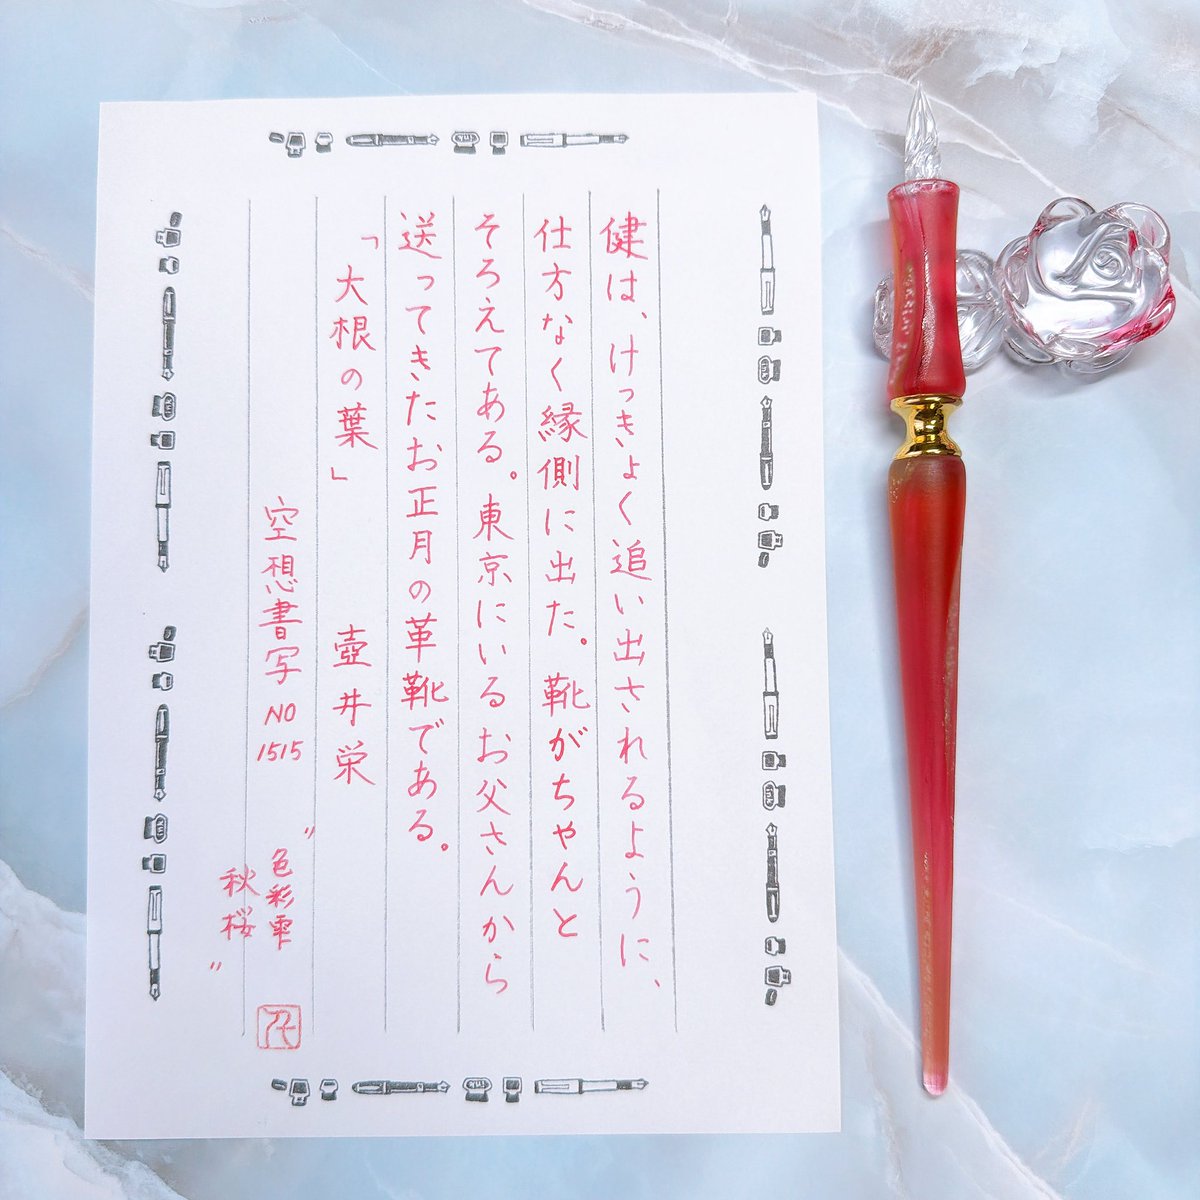 健は、けっきょく追い出されるように、
仕方なく縁側に出た。靴がちゃんと
そろえてある。東京にいるお父さんから
送ってきたお正月の革靴である。
「大根の葉」 壺井栄
空想書写 NO 1515
"色彩雫
秋桜"